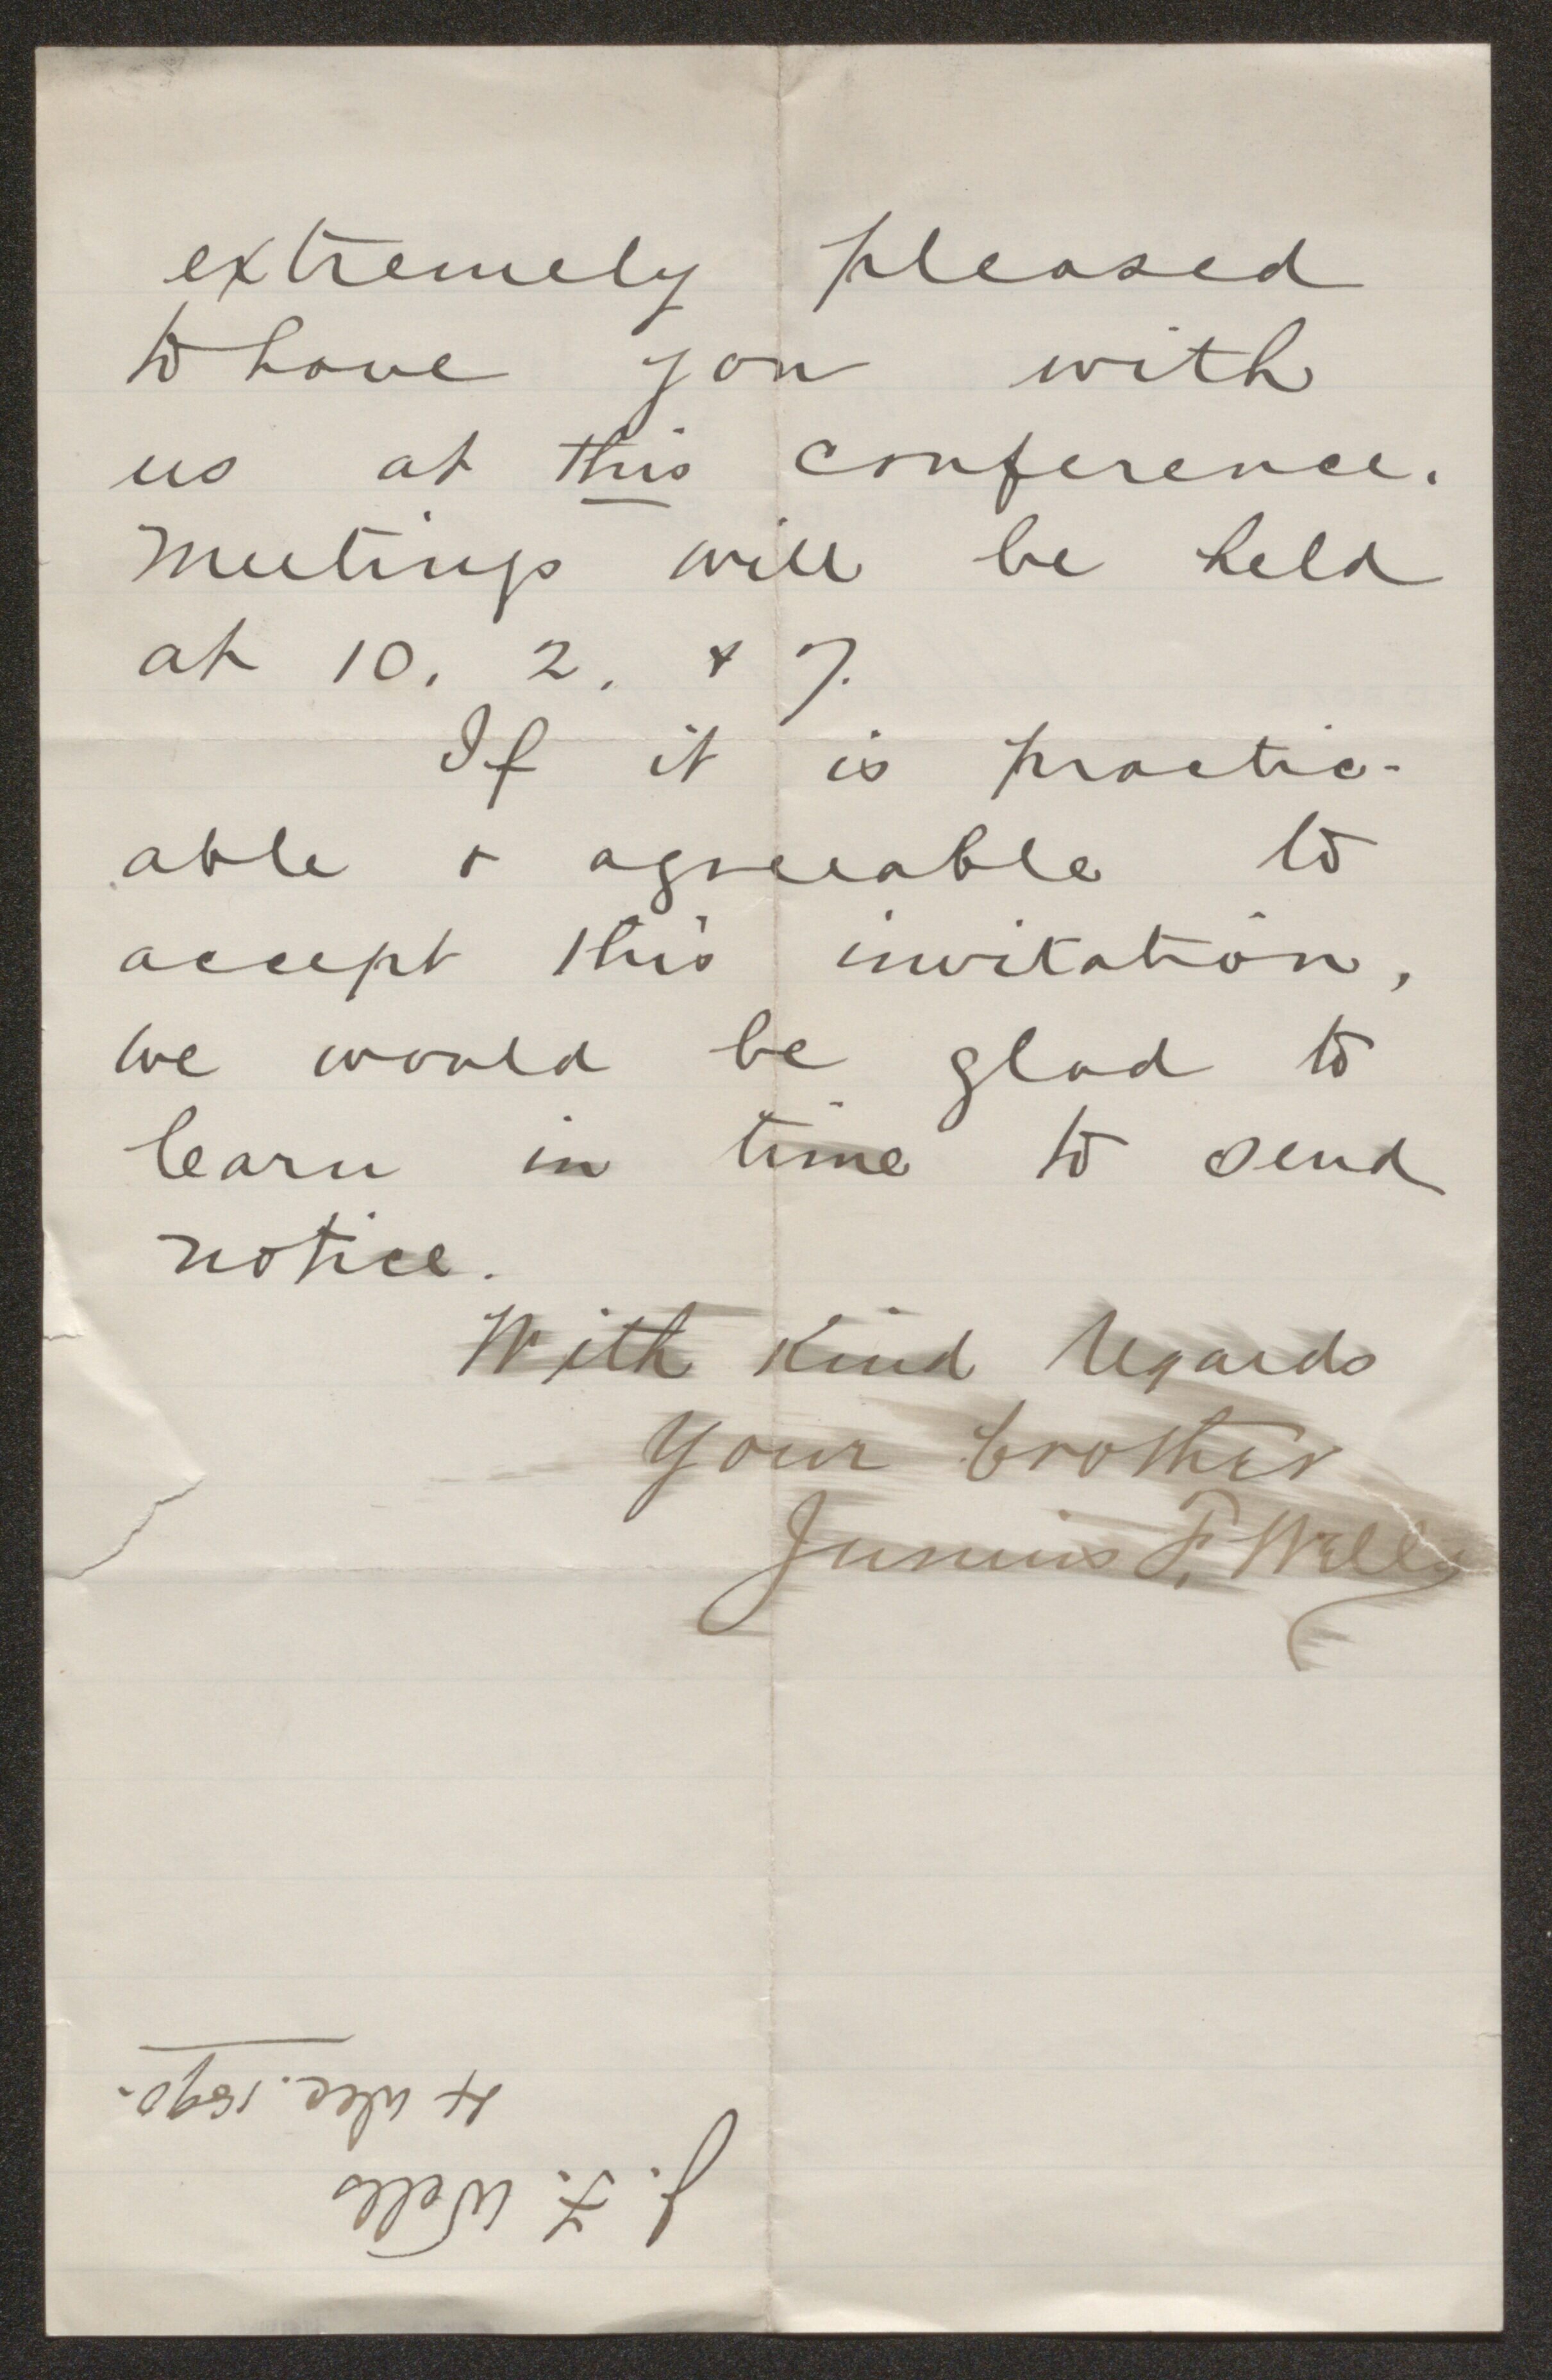 extremely pleased
to have you with
us at this conference.
Meetings will be held
at 10. 2. & 7.
If it is practic-
able & agreeable to
accept this invitation,
we would be glad to
learn in time to send
notice.
With kind regards
Your brother
Junius F. Wells
J. F. Wells
4 Dec. 1890.